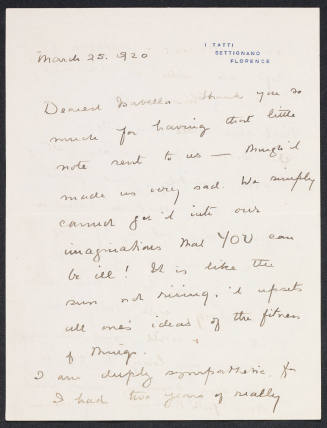 I TATTI
SETTIGNANO
FLORENCE
March 25. 1920
Dearest Isabella Thank you so
much for having that little
note sent to us — though it
made us very sad. We simply
cannot get it into our
imaginations that YOU can
be ill! It is like the
sun not rising, it upsets
all one's ideas of the fitness
of things.
I am deeply sympathetic, for
I had two years of really